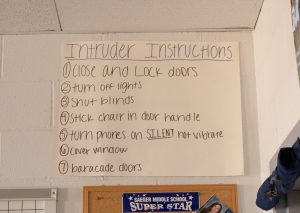 Intruder Instructions
① Close and Lock doors
② turn off lights
③ Shut blinds
④ Stick chair in door handle
⑤ turn phones on SILENT not vibrate
⑥ cover window
⑦ baracade doors
SAEGER MIDDLE SCHOOL
SUPER STAR